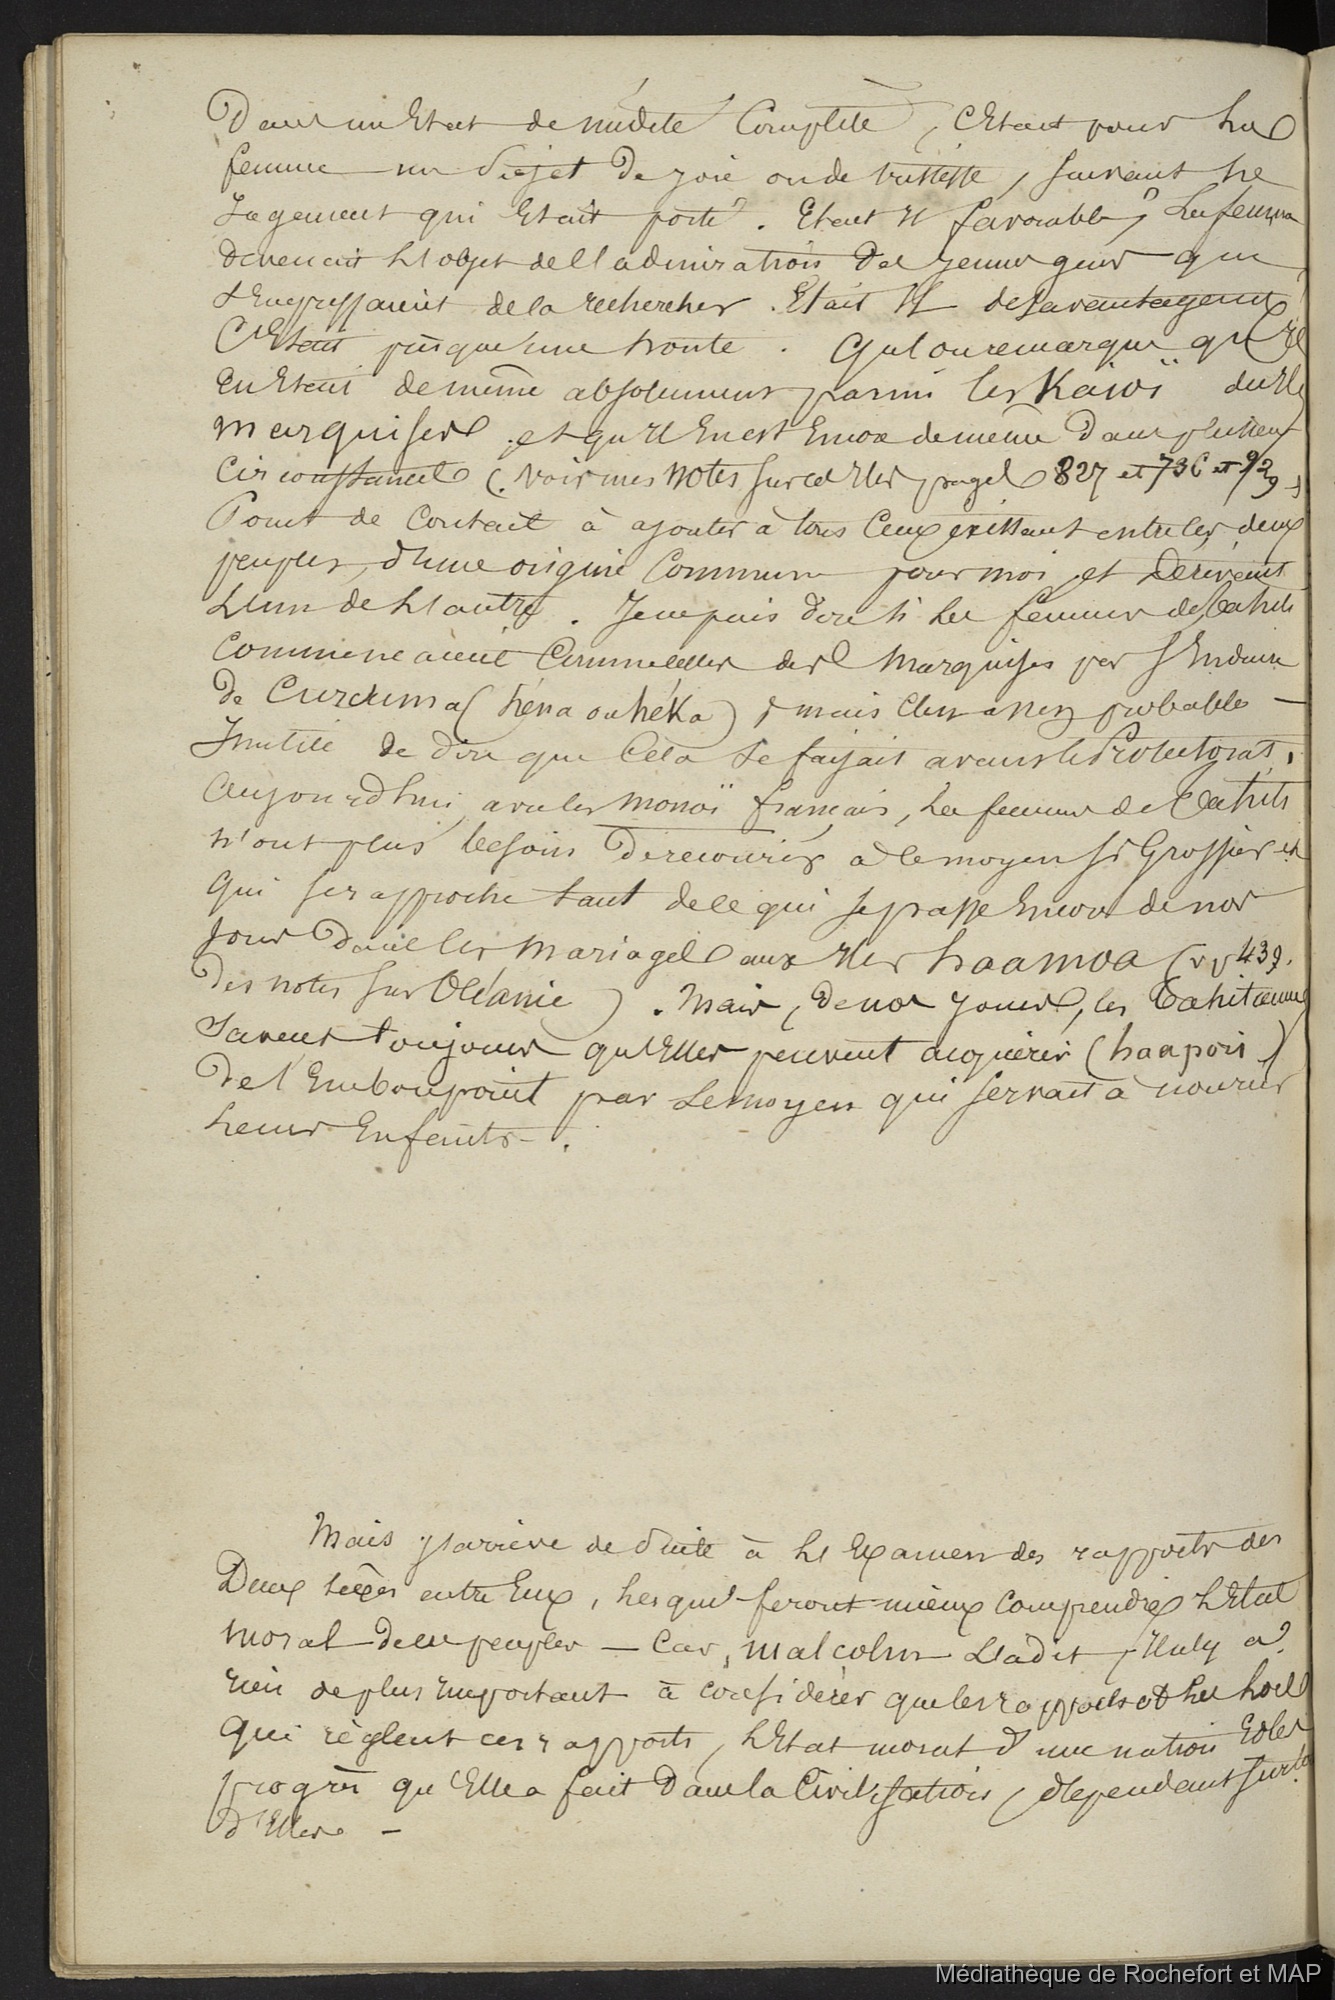 Dans un Etat de nudité Complète, C'Etait pour la
femme un Sujet De joie ou de tristesse, suivant le
Jugement qui Etait porté. Etait il favorable, La femme
devenait l'objet de l'admiration Des jeunes gens qui
s'Empressaient de la rechercher. Etait Il désavantageux
C'Etait presque une honte. Qu'on remarque qu'il
En Etait de même absolument parmi les Kaïoï des Iles
marquises et qu'Il En est Encore de même Dans plusieurs
Circonstances (voir mes notes sur ces Iles pages 827 et 736 et 929
Point de Contact à ajouter à tous Ceux existant entre les deux
peuples, d'une origine Commune pour moi, et Dérivant
L'un de L'autre. Je ne puis dire si les femmes de Tahiti
Commençaient Comme celles des Marquises par s'Enduire
De Curcuma (héna ou héka), mais C'est assez probable —
Inutile de dire que Cela se faisait avant le Protectorat,
Aujourd'hui, avec les monoï français, les femmes de Tahiti
n'ont plus besoin De recourir à ce moyen si Grossier et
Qui se rapproche tant de ce qui se passe Encore de nos
Jours Dans les mariages aux Iles haamoa (v p 439.
Des notes sur Océanie). Mais, De nos jours, les Tahitiennes
Savent toujours qu'Elles peuvent acquérir (haapori)
De l'Embonpoint par Le moyen qui servait à nourrir
Leurs Enfants.
Mais j'arrive de Suite à l'Examen des rapports des
Deux sexes entre Eux, lesquels feront mieux Comprendre l'Etat
moral de ces peuples — Car, malcolm L'a dit, Il n'y a
rien de plus Important à considérer que les rapports et les lois
Qui règlent ces rapports, l'Etat moral d'une nation Et les
progrès qu'Elle a fait Dans la Civilisation, dépendant surtout
d'Elles —
Médiathèque de Rochefort et MAP